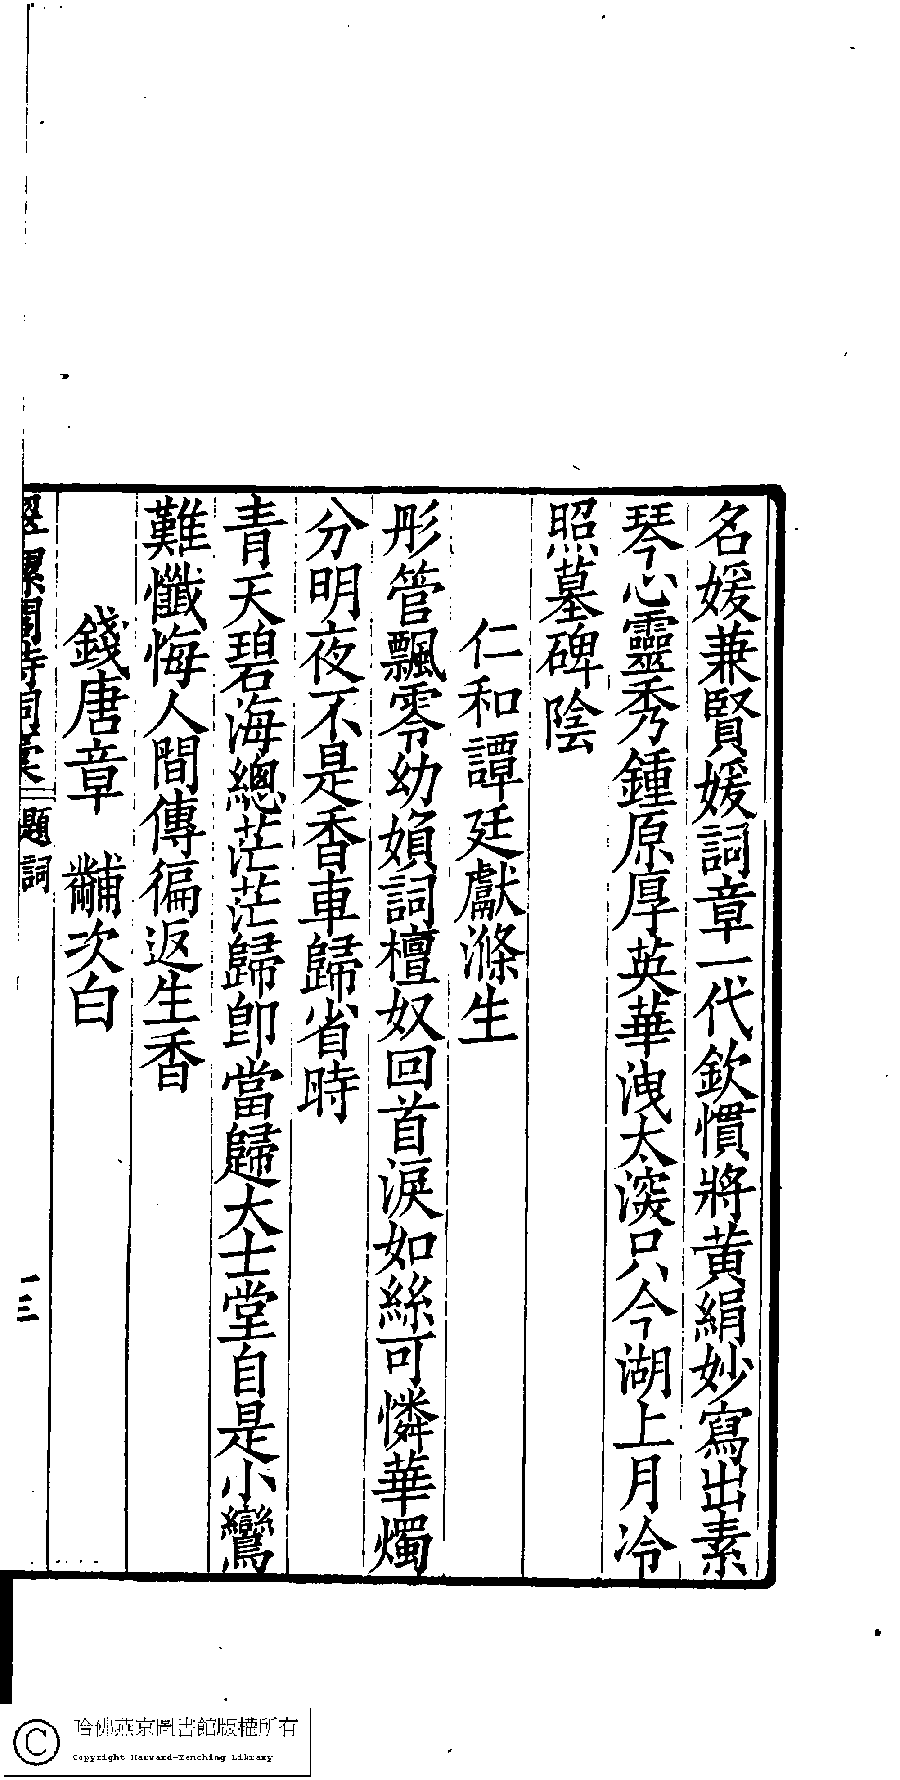 名媛兼賢媛詞章一代欽慣將黃絹妙寫出素
琴心靈秀鍾原厚英華洩太深只今湖上月冷
照墓碑陰
仁和譚廷獻滌生
彤管飄零幼嬪詞檀奴回首淚如絲可憐華燭
分明夜不是香車歸省時
青天碧海總茫茫歸卽當歸大士堂自是小鸞
難懺悔人間傳徧返生香
錢唐章黼次白
翠螺閣詩詞稾 題詞
三
哈佛燕京圖書館版權所有
Copyright Harvard-Yenching Library